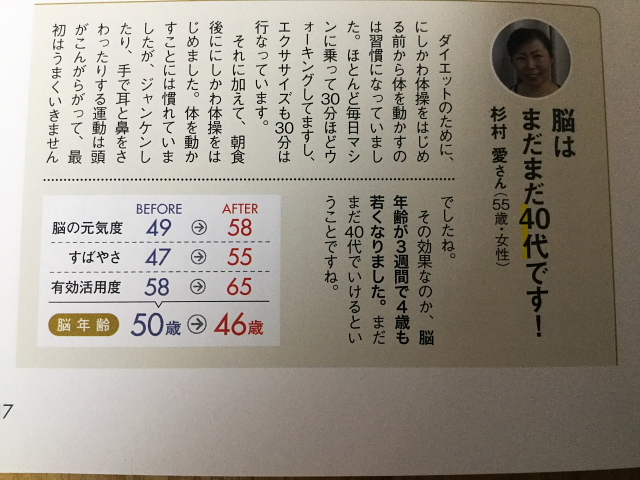 脳は
まだまだ40代です!
杉村 愛さん(55歳・女性)
ダイエットのために、
にしかわ体操をはじめ
る前から体を動かすの
は習慣になっていまし
た。ほとんど毎日マシ
ンに乗って30分ほどウ
ォーキングしてますし、
エクササイズも30分は
行なっています。
それに加えて、朝食
後ににしかわ体操をは
じめました。体を動か
すことには慣れていま
したが、ジャンケンし
たり、手で耳と鼻をさ
わったりする運動は頭
がこんがらがって、最
初はうまくいきません
でしたね。
その効果なのか、脳
年齢が3週間で4歳も
若くなりました。まだ
まだ40代でいけるとい
うことですね。
BEFORE AFTER
脳の元気度 49 → 58
すばやさ 47 → 55
有効活用度 58 → 65
脳年齢 50歳 → 46歳